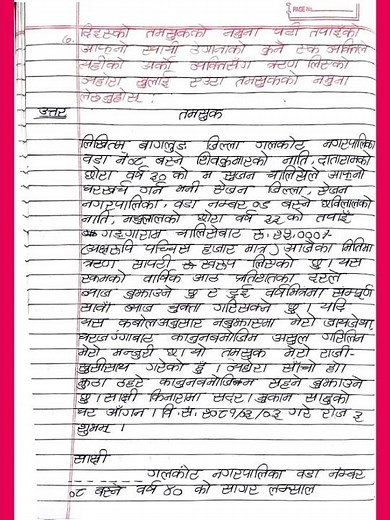 PAGE NO.
७. दिइएको तमसुकको नमुना पढी तपाईंको
आफ्नो स्थायी ठेगानाको कुनै एक व्यक्तिले
सहीको अर्को व्यक्तिसँग ऋण लिएको
व्यहोरा खुलाई एउटा तमसुकको नमुना
लेख्नुहोस् :
उत्तर तमसुक
लिखितम् बागलुङ जिल्ला गलकोट नगरपालिका
वडा नं ०८ बस्ने शिवकुमारको नाति, दातारामको
छोरा वर्ष ३० को म सृजन चालिसेले आफ्नो
घरखर्च गर्न भनी सोजन जिल्ला, सोजन
नगरपालिका, वडा नम्बर ०८ बस्ने छविलालको
नाति, नन्दलालको छोरा वर्ष ३३ को तपाईं
गङ्गाराम चालिसेबाट रु. २५,०००/-
(अक्षरुपि पच्चिस हजार मात्र) आजका मितिमा
ऋण सापटी स्वरुप लिएको छु। यस
रकमको वार्षिक आठ प्रतिशतका दरले
ब्याज बुझाउने छु र दुई वर्षभित्रमा सम्पूर्ण
सावाँ ब्याज चुक्ता गरिसक्ने छु। यदि
यस कबोलअनुसार नबुझाएमा मेरो जायजेथा,
घरजग्गाबाट कानुनबमोजिम असुल गरिलिन
मेरो मन्जुरी छ। यो तमसुक मेरो राजी-
खुसीसाथ गरेको हुँ। व्यहोरा साँचो हो।
झुठा ठहरे कानुनबमोजिम सहने बुझाउने
छु। साक्षी किनारामा सदर। मुकाम साहुको
घर आँगन। वि.सं. २०८१/०२/०३ गते रोज ३
शुभम्।
साक्षी
गलकोट नगरपालिका वडा नम्बर
०८ बस्ने वर्ष ४० को सागर लम्साल